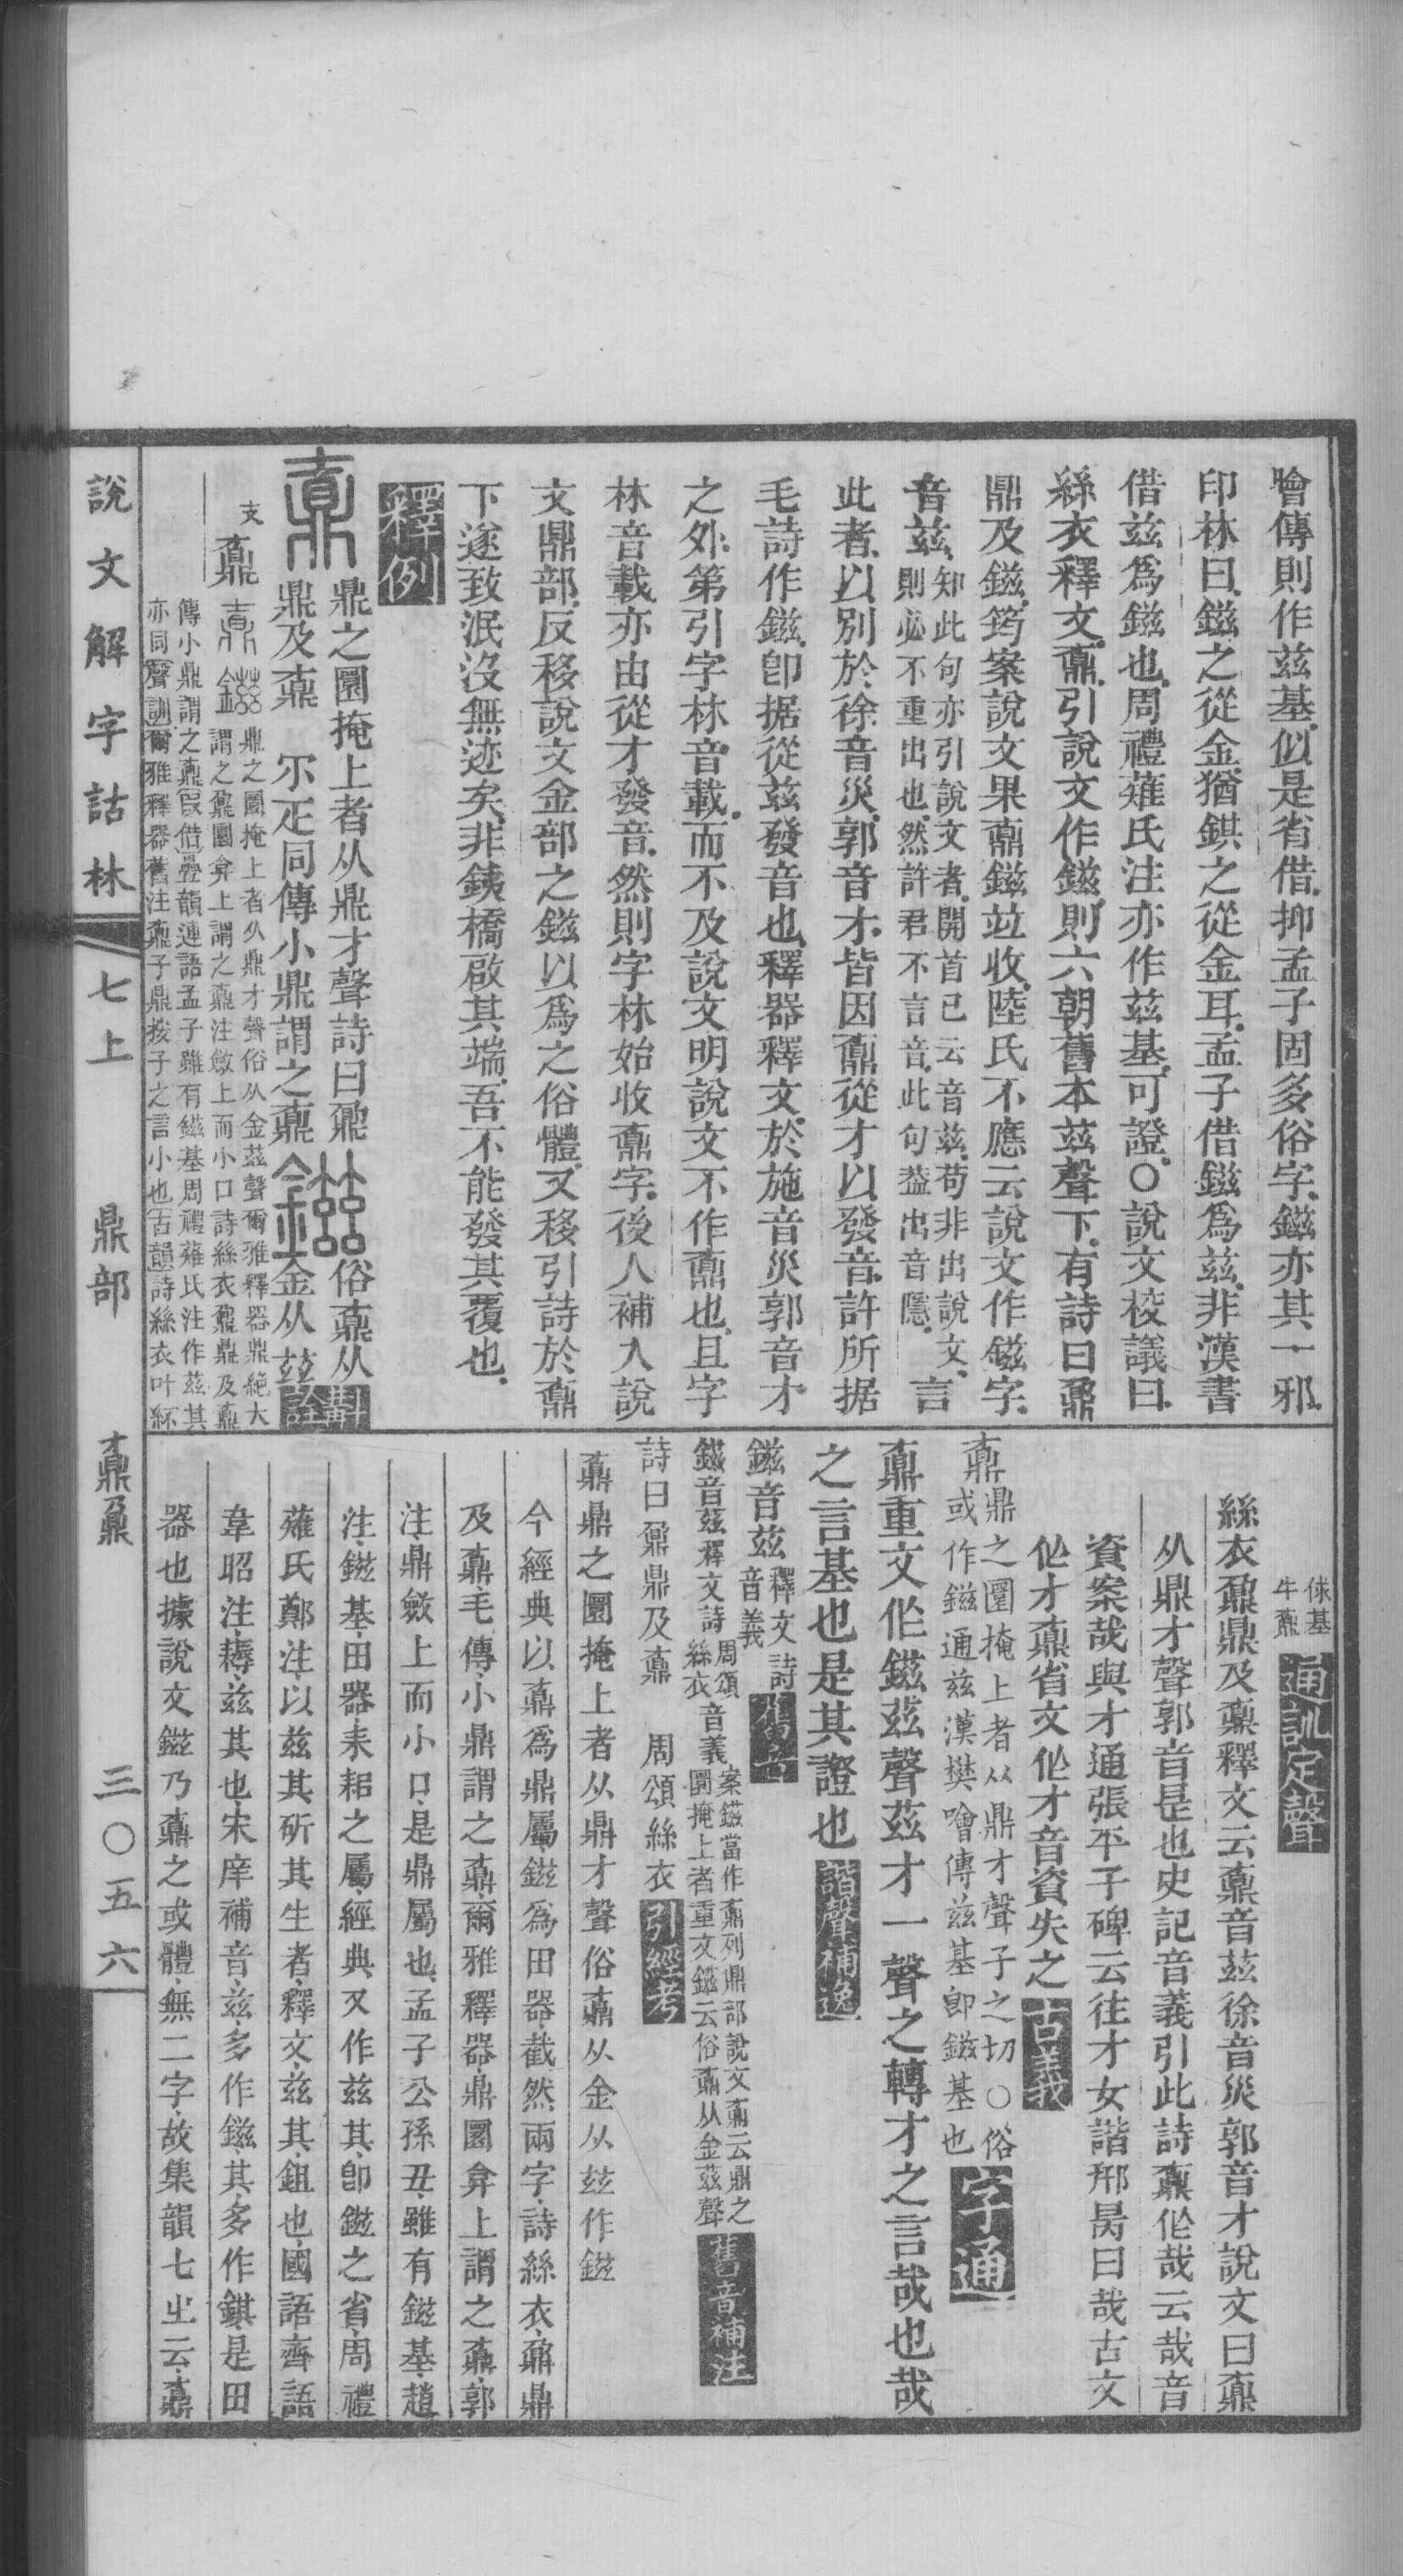 噲傳則作茲基似是省借抑孟子固多俗字鎡亦其一邪
印林曰鎡之從金猶錤之從金耳孟子借鎡爲茲非漢書
借茲爲鎡也周禮薙氏注亦作茲基可證〇說文校議曰
絲衣釋文鼒引說文作鎡則六朝舊本茲聲下有詩曰鼐
鼎及鎡筠案說文果鼒鎡竝收陸氏不應云說文作鎡字
音茲知此句亦引說文者開首已云音茲苟非出說文
則必不重出也然許君不言音此句葢出音隱言
此者以別於徐音災郭音才皆因鼒從才以發音許所据
毛詩作鎡卽据從茲發音也釋器釋文於施音災郭音才
之外第引字林音載而不及說文明說文不作鼒也且字
林音載亦由從才發音然則字林始收鼒字後人補入說
文鼎部反移說文金部之鎡以爲之俗體又移引詩於鼒
下遂致泯沒無迹矣非銕橋啟其端吾不能發其覆也
釋例
鼒鼎之圜掩上者从鼎才聲詩曰鼐
鼎及鼒 尒疋同傳小鼎謂之鼒鎡俗鼒从
金从茲
支鼒
鼒鎡鼎之圜掩上者从鼎才聲俗从金茲聲爾雅釋器鼎絕大
謂之鼐圜弇上謂之鼒注斂上而小口詩絲衣鼐鼎及鼒
傳小鼎謂之鼒叚借疊韻連語孟子雖有鎡基周禮薙氏注作茲其
亦同聲訓爾雅釋器舊注鼒子鼎按子之言小也古韻詩絲衣叶紑
俅基
牛鼒通訓定聲
絲衣鼐鼎及鼒釋文云鼒音茲徐音災郭音才說文曰鼒
从鼎才聲郭音是也史記音義引此詩鼒作哉云哉音
資案哉與才通張平子碑云往才女諧邢昺曰哉古文
作才鼒省文作才音資失之古義
鼒鼎之圜掩上者从鼎才聲子之切〇俗
或作鎡通茲漢樊噲傳茲基卽鎡基也字通
鼒重文作鎡茲聲茲才一聲之轉才之言哉也哉
之言基也是其證也諧聲補逸
鎡音茲釋文詩
音義舊音
鎡音茲釋文詩周頌
絲衣音義案鎡當作鼒列鼎部說文鼒云鼎之
圜掩上者重文鎡云俗鼒从金茲聲舊音補注
詩曰鼐鼎及鼒 周頌絲衣引經考
鼒鼎之圜掩上者从鼎才聲俗鼒从金从茲作鎡
今經典以鼒爲鼎屬鎡爲田器截然兩字詩絲衣鼐鼎
及鼒毛傳小鼎謂之鼒爾雅釋器鼎圜弇上謂之鼒郭
注鼎斂上而小口是鼎屬也孟子公孫丑雖有鎡基趙
注鎡基田器耒耜之屬經典又作茲其卽鎡之省周禮
薙氏鄭注以茲其斫其生者釋文茲其鉏也國語齊語
韋昭注耨茲其也宋庠補音茲多作鎡其多作錤是田
器也據說文鎡乃鼒之或體無二字故集韻七之云鼒
說文解字詁林 七上 鼎部 鼒鼐 三〇五六